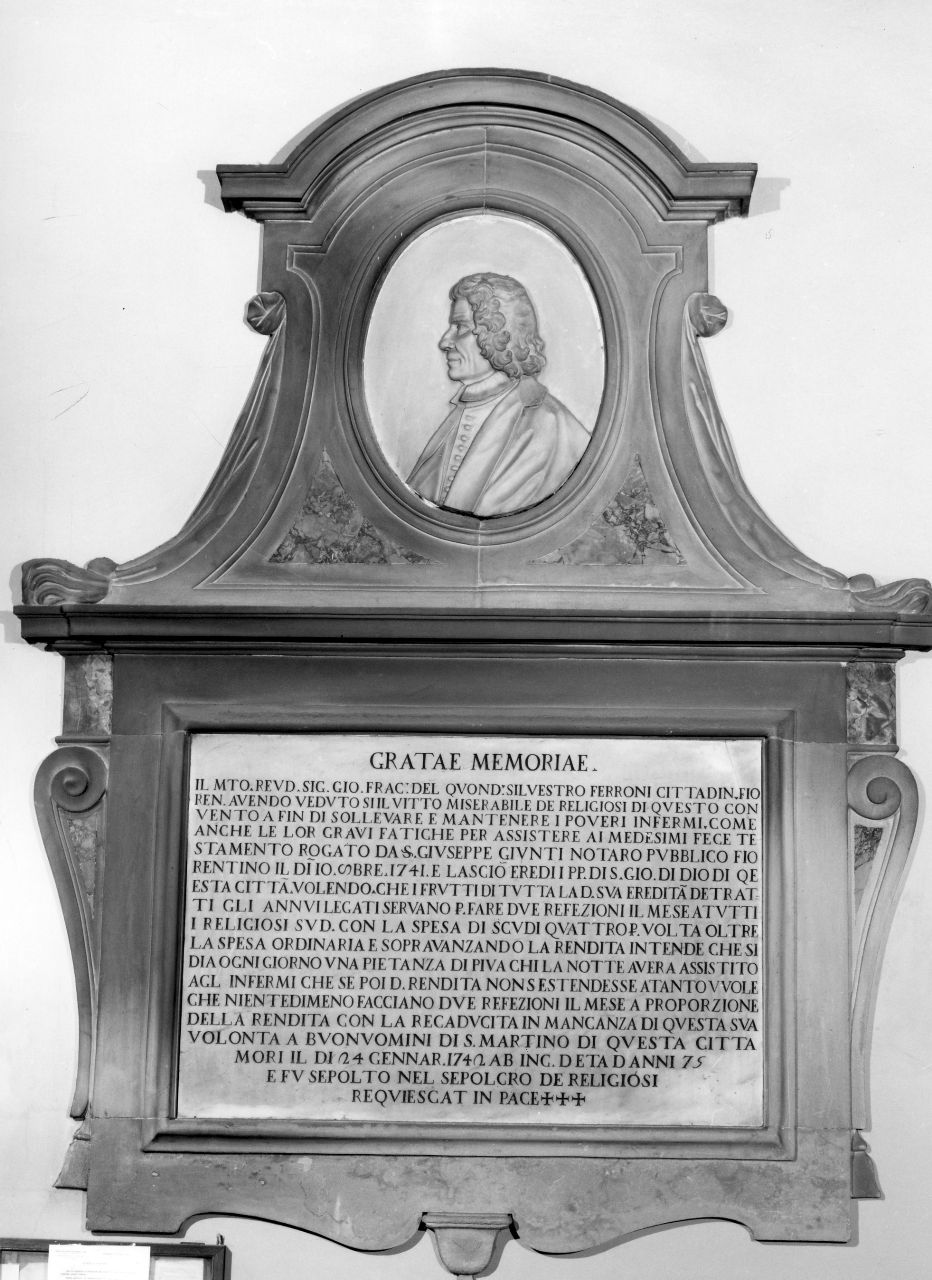 GRATAE MEMORIAE.
IL MTO. REVD. SIG. GIO. FRAC: DEL QVOND: SILVESTRO FERRONI CITTADIN. FIO
REN. AVENDO VEDVTO SI IL VITTO MISERABILE DE RELIGIOSI DI QVESTO CON
VENTO A FIN DI SOLLEVARE E MANTENERE I POVERI INFERMI. COME
ANCHE LE LOR GRAVI FATICHE PER ASSISTERE AI MEDESIMI FECE TE
STAMENTO ROGATO DA S. GIVSEPPE GIVNTI NOTARO PVBBLICO FIO
RENTINO IL DI IO. 8BRE. 1741. E LASCIÒ EREDI I PP. DI S. GIO. DI DIO DI QE
ESTA CITTÀ. VOLENDO. CHE I FRVTTI DI TVTTA LA D. SVA EREDITÀ DETRAT-
TI GLI ANNVI LEGATI SERVANO P. FARE DVE REFEZIONI IL MESE A TVTTI
I RELIGIOSI SVD. CON LA SPESA DI SCVDI QVATTRO P. VOLTA OLTRE
LA SPESA ORDINARIA E SOPRAVANZANDO LA RENDITA INTENDE CHE SI
DIA OGNI GIORNO VNA PIETANZA DI PIVA CHI LA NOTTE AVERA ASSISTITO
AGL INFERMI CHE SE POI D. RENDITA NON S ESTENDESSE A TANTO VVOLE
CHE NIENTEDIMENO FACCIANO DVE REFEZIONI IL MESE A PROPORZIONE
DELLA RENDITA CON LA RECADVCITA IN MANCANZA DI QVESTA SVA
VOLONTA A BVONVOMINI DI S. MARTINO DI QVESTA CITTA
MORI IL DI 24 GENNAR. 1742 AB INC. D ETA D ANNI 75
E FV SEPOLTO NEL SEPOLCRO DE RELIGIOSI
REQVIESCAT IN PACE ✠✠✠